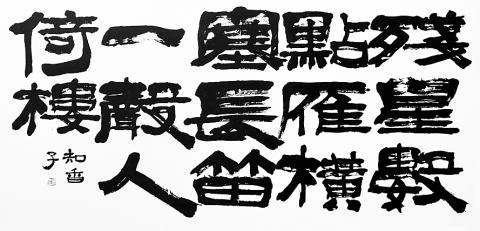 殘星數
點雁橫
塞長笛
一聲人
倚樓
知
子